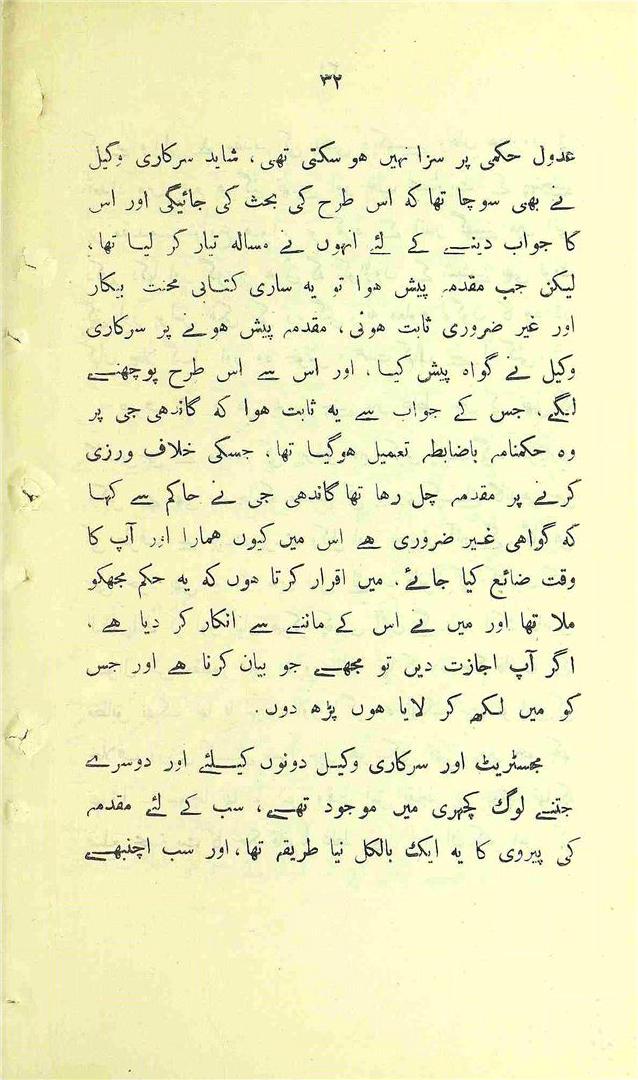 ۳۲
عدول حکمی پر سزا نہیں ہو سکتی تھی، شاید سرکاری وکیل
نے بھی سوچا تھا کہ اس طرح کی بحث کی جائیگی اور اس
کا جواب دینے کے لئے انہوں نے مسالہ تیار کر لیا تھا،
لیکن جب مقدمہ پیش ہوا تو یہ ساری کتابی محنت بیکار
اور غیر ضروری ثابت ہوئی، مقدمہ پیش ہونے پر سرکاری
وکیل نے گواہ پیش کیا، اور اس سے اس طرح پوچھنے
لگے، جس کے جواب سے یہ ثابت ہوا کہ گاندھی جی پر
وہ حکمنامہ باضابطہ تعمیل ہوگیا تھا، جسکی خلاف ورزی
کرنے پر مقدمہ چل رہا تھا گاندھی جی نے حاکم سے کہا
کہ گواہی غیر ضروری ہے اس میں کیوں ہمارا اور آپ کا
وقت ضائع کیا جائے، میں اقرار کرتا ہوں کہ یہ حکم مجھکو
ملا تھا اور میں نے اس کے ماننے سے انکار کر دیا ہے،
اگر آپ اجازت دیں تو مجھے جو بیان کرنا ہے اور جس
کو میں لکھ کر لایا ہوں پڑھ دوں۔
مجسٹریٹ اور سرکاری وکیل دونوں کیلئے اور دوسرے
جتنے لوگ کچہری میں موجود تھے، سب کے لئے مقدمہ
کی پیروی کا یہ ایک بالکل نیا طریقہ تھا، اور سب اچنبھے